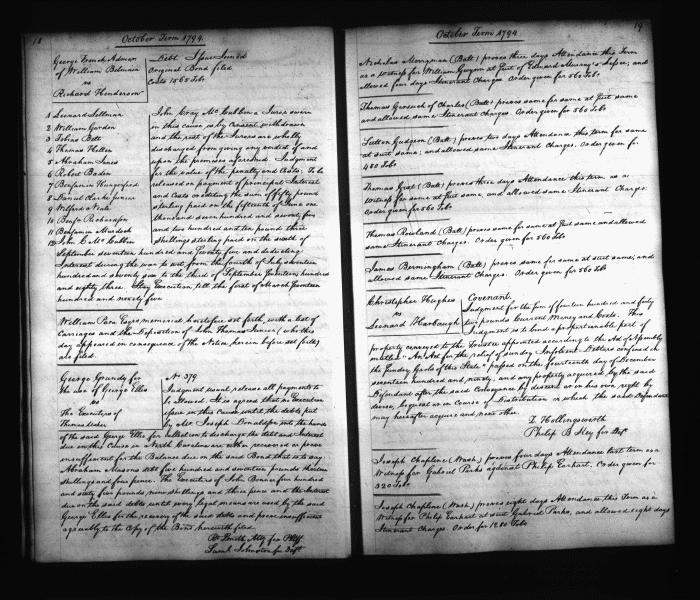 18
October Term 1794.
George French Admon
of William Bateman
vs
Richard Henderson
Debt Issue Joined
Original Bond filed
Costs 1565 Tobo
1 Leonard Sellman
2 William Gordon
3 Tobias Belt
4 Thomas Hellen
5 Abraham Jones
6 Robert Baden
7 Benjamin Hungerford
8 Daniel Clarke junior
9 Wilfred Neale
10 Benja Richardson
11 Benjamin Murdock
12 John C McCubbin
John Gray McCubbin a Juror sworn
in this cause is by Consent withdrawn
and the rest of the Jurors are wholly
discharged from giving any verdict of and
upon the premises aforesaid. Judgment
for the value of the penalty and Costs. To be
released on payment of principal Interest
and Costs crediting the sum of fifty pound
sterling paid on the fifteenth of June one
thousand seven hundred and seventy five
and two hundred and ten pound three
shillings sterling paid on the sixth of
September seventeen hundred and seventy five and deducting
Interest during the war to wit from the fourth of July seventeen
hundred and seventy six to the third of September seventeen hundred
and eighty three. Stay Execution till the first of March seventeen
hundred and ninety five
William Paca Esqrs memorial heretofore set forth, with a list of
Carriages and the Deposition of John Thomas Junior (who this
day appeared in consequence of the Notice herein before set forth)
are filed.
George Grundy for
the use of George Ellis
vs
The Executors of
Thomas
No 379
Judgment usual release all payments to
be allowed. It is agreed that no Execution
issue in this cause until the debts put
by Mr Joseph Donaldson into the hands
of the said George Ellis for collection to discharge the debt and Interest
due in this Cause in North Carolina are either recovered or prove
insufficient for the Balance due on the said Bond that is to say
Abraham Masons debt five hundred and seventeen pounds thirteen
shillings and four pence. The Executors of John Bonner four hundred
and sixty five pounds nine shillings and three pence and the Interest
due on the said debts until every legal means are used by the said
George Ellis for the recovery of the said debts and prove insufficient
agreeably to the Copy of the Bond herewith filed.
R. Smith, Atty for Plff
Saml Johnston for Deft
19
October Term 1794
Nicholas Merryman (Balt) proves three days Attendance this Term
as a witness for William Gwynn at suit of Edward Murray's Lessee; and
allowed four days Itinerant Charges. Order given for 560 Tobo
Thomas Gorsuch of Charles (Balt) proves same for same at suit same
and allowed same Itinerant Charges. Order given for 560 Tobo
Sutton Gudgeon (Balt) proves two days Attendance this term for same
at suit same; and allowed same Itinerant Charges. Order given for
480 Tobo
Thomas Grost (Balt) proves three days Attendance this term as a
witness for same at suit same, and allowed same Itinerant Charges.
Order given for 560 Tobo
Thomas Rowland (Balt) proves same for same at suit same and allowed
same Itinerant Charges. Order given for 560 Tobo
James Bermingham (Balt) proves same for same at suit same; and
allowed same Itinerant Charges. Order given for 560 Tobo
Christopher Hughes
vs
Leonard Harbaugh
Covenant.
Judgment for the sum of fourteen hundred and forty
two pounds Current Money and Costs. This
Judgment is to bind a proportionable part of
property conveyed to the Trustee appointed according to the Act of Assembly
entitled "An Act for the relief of sundry Insolvent Debtors confined in
the sundry Gaols of this State" passed on the fourteenth day of December
seventeen hundred and ninety, and any property acquired by the said
Defendant after the said Conveyance by descent or in his own right by
devise, bequest or in Course of Distribution or which the said Defendant
may hereafter acquire and none other
T. Hollingsworth
Philip B Key for Deft
Joseph Chapline (Wash) proves four days Attendance last term as a
Witness for Gabriel Parks against Philip Earhart. Order given for
320 Tobo
Joseph Chapline (Wash) proves eight days Attendance this Term as a
Witness for Philip Earhart at suit Gabriel Parks, and allowed eight days
Itinerant Charges. Order for 1280 Tobo